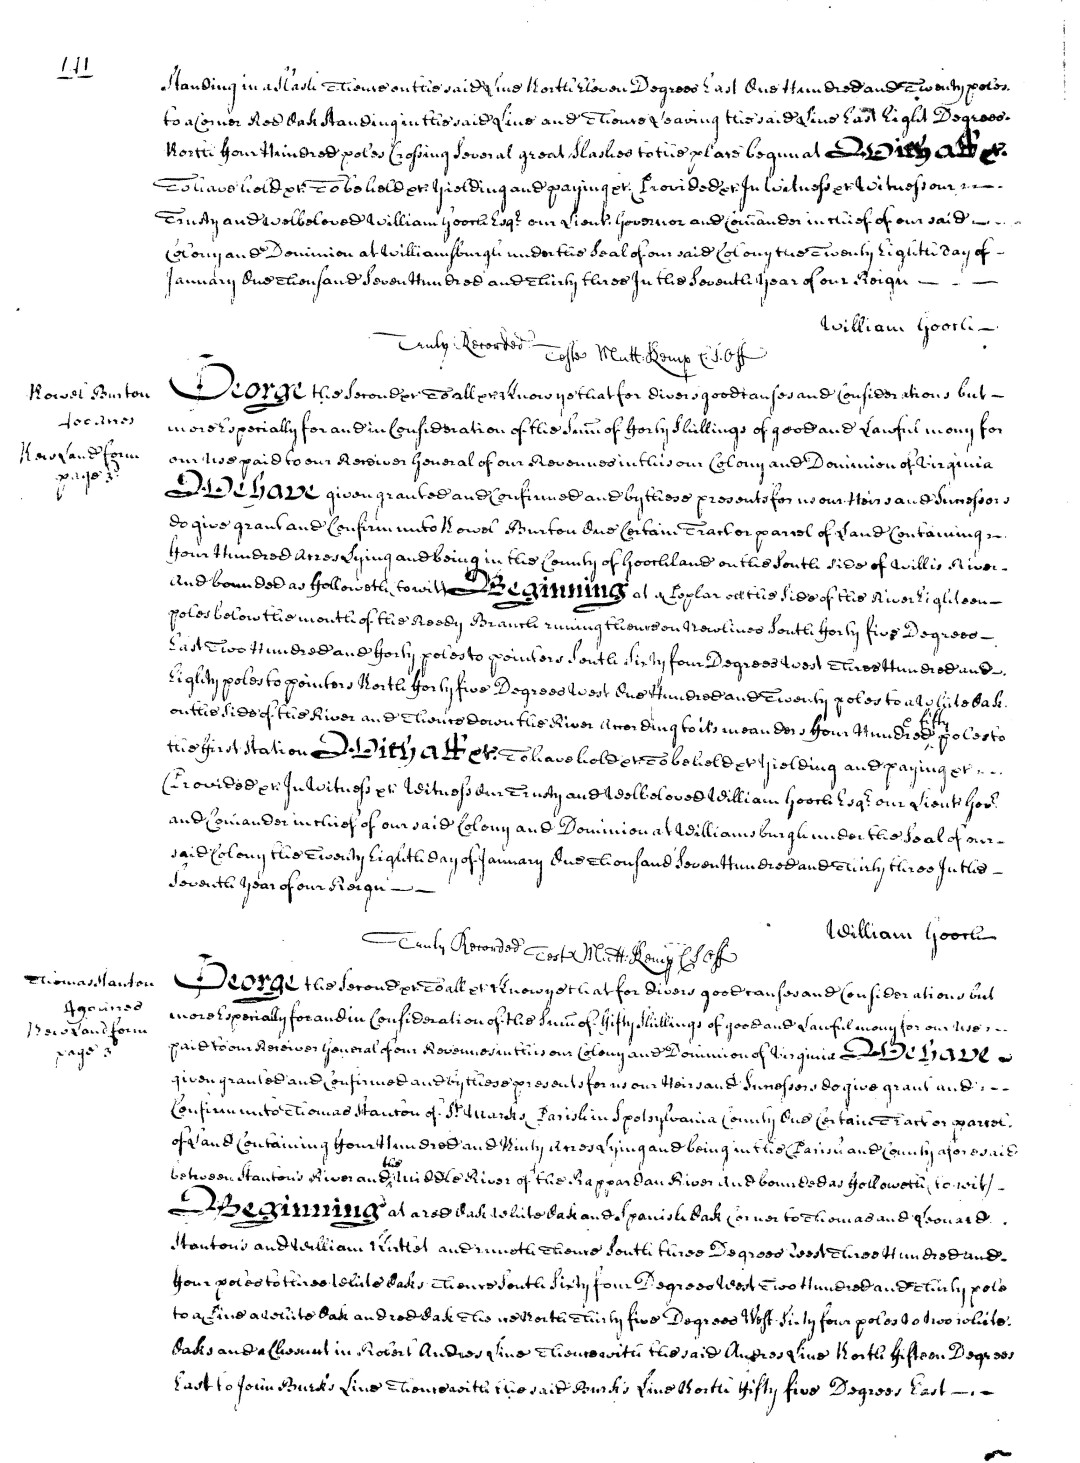 111
Standing in a Slash Thence on the said Line North Eleven Degrees East One Hundred and Twenty poles
to a Corner Red Oak Standing in the said Line and Thence Leaving the said Line East Eight Degrees
North Four Hundred poles Crossing Several great Slashes to the place began at With all &c.
To have hold &c. To be held &c. Yielding and paying &c. Provided &c. In Witness &c. Witness our
Trusty and Welbeloved William Gooch Esqr. our Lieut. Governor and Com̄ander in chief of our said
Colony and Dominion at Williamsburgh under the Seal of our said Colony the Twenty Eighth day of
January One Thousand Seven Hundred and Thirty three In the Seventh Year of our Reign
William Gooch
Truly Recorded
Teste Matt: Kemp C S Off
Nowel Burton
400 acres
New Land form
page 3
George the Second &c. To all &c. Know ye that for divers good causes and Considerations but
more Especially for and in Consideration of the Sum̄ of Forty Shillings of good and Lawful mony for
our Use paid to our Receiver General of our Revenues in this our Colony and Dominion of Virginia
We have given granted and Confirmed and by these presents for us our Heirs and Successors
do give grant and Confirm unto Nowel Burton One Certain Tract or parcel of Land Containing
Four Hundred Acres Lying and being in the County of Goochland on the South Side of Willis River
And bounded as Followeth, to wit, Beginning at a Poplar on the Side of the River Eighteen
poles below the mouth of the Reedy Branch runing thence on New lines South Forty five Degrees
East Two Hundred and Forty poles to pointers South Sixty four Degrees West Three Hundred and
Eighty poles to pointers North Forty five Degrees West One Hundred and Twenty poles to a White Oak
on the Side of the River and Thence down the River According to its meanders Four Hundred & fifty poles to
the First Station With all &c. To have hold &c. To be held &c. Yielding and paying &c.
Provided &c. In Witness &c. Witness Our Trusty and Welbeloved William Gooch Esqr. our Lieut. Govr.
and Com̄ander in chief of our said Colony and Dominion at Williamsburgh under the Seal of our
said Colony the Twenty Eighth day of January One Thousand Seven Hundred and Thirty three In the
Seventh Year of our Reign
William Gooch
Truly Recorded Test Matt: Kemp C S Off
Thomas Stanton
490 acres
New Land form
page 3
George the Second &c. To all &c. Know ye that for divers good causes and Considerations but
more Especially for and in Consideration of the Sum̄ of Fifty Shillings of good and Lawful mony for our Use
paid to our Receiver General of our Revenues in this our Colony and Dominion of Virginia We have
given granted and Confirmed and by these presents for us our Heirs and Successors do give grant and
Confirm unto Thomas Stanton of St. Marks Parish in Spotsylvania County One Certain Tract or parcel
of Land Containing Four Hundred and Ninty Acres Lying and being in the Parish and County aforesaid
between Stanton's River and the Middle River of the Rappardan River And bounded as Followeth, to wit,
Beginning at a red Oak White Oak and Spanish Oak Corner to Thomas and Leonard
Stanton's and William and runeth Thence South three Degrees West Three Hundred and
Four poles to three White Oaks Thence South Sixty four Degrees West Two Hundred and Thirty pole
to a Pine a White Oak and red Oak Thence North Thirty five Degrees West Sixty four poles to two white
Oaks and a Chesnut in Robert Andres Line Thence with the said Andres Line North Fifteen Degrees
East to John Burk's Line Thence with the said Burk's Line North Fifty five Degrees East